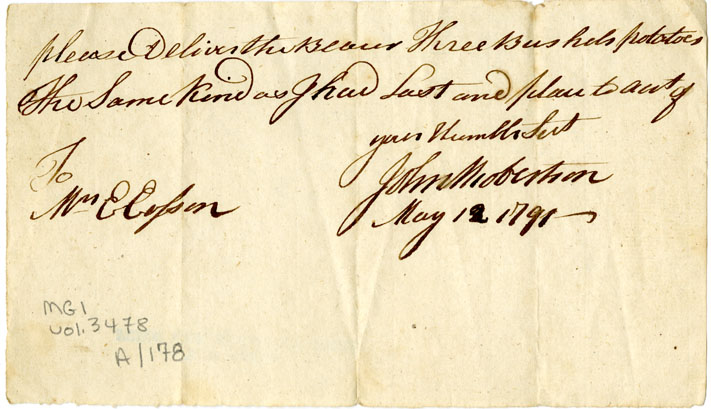 please Deliver the Bearer Three Bushels potatoes
The Same Kind as I had Last and place to act of
your Humble Sert
John Robertson
May 12 1791
To
Mrs E
MG1
vol. 3478
A/178